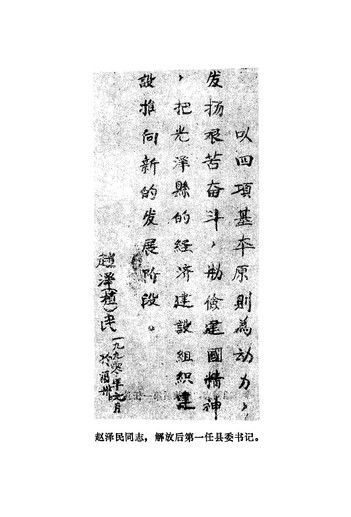 以四項基本原則為动力，
发扬艰苦奋斗，勤儉建國精神
，把光泽縣的经济建設組织建
設推向新的发展阶段。
趙泽(植)民
一九九〇年元月
赵泽民同志，解放后第一任县委书记。